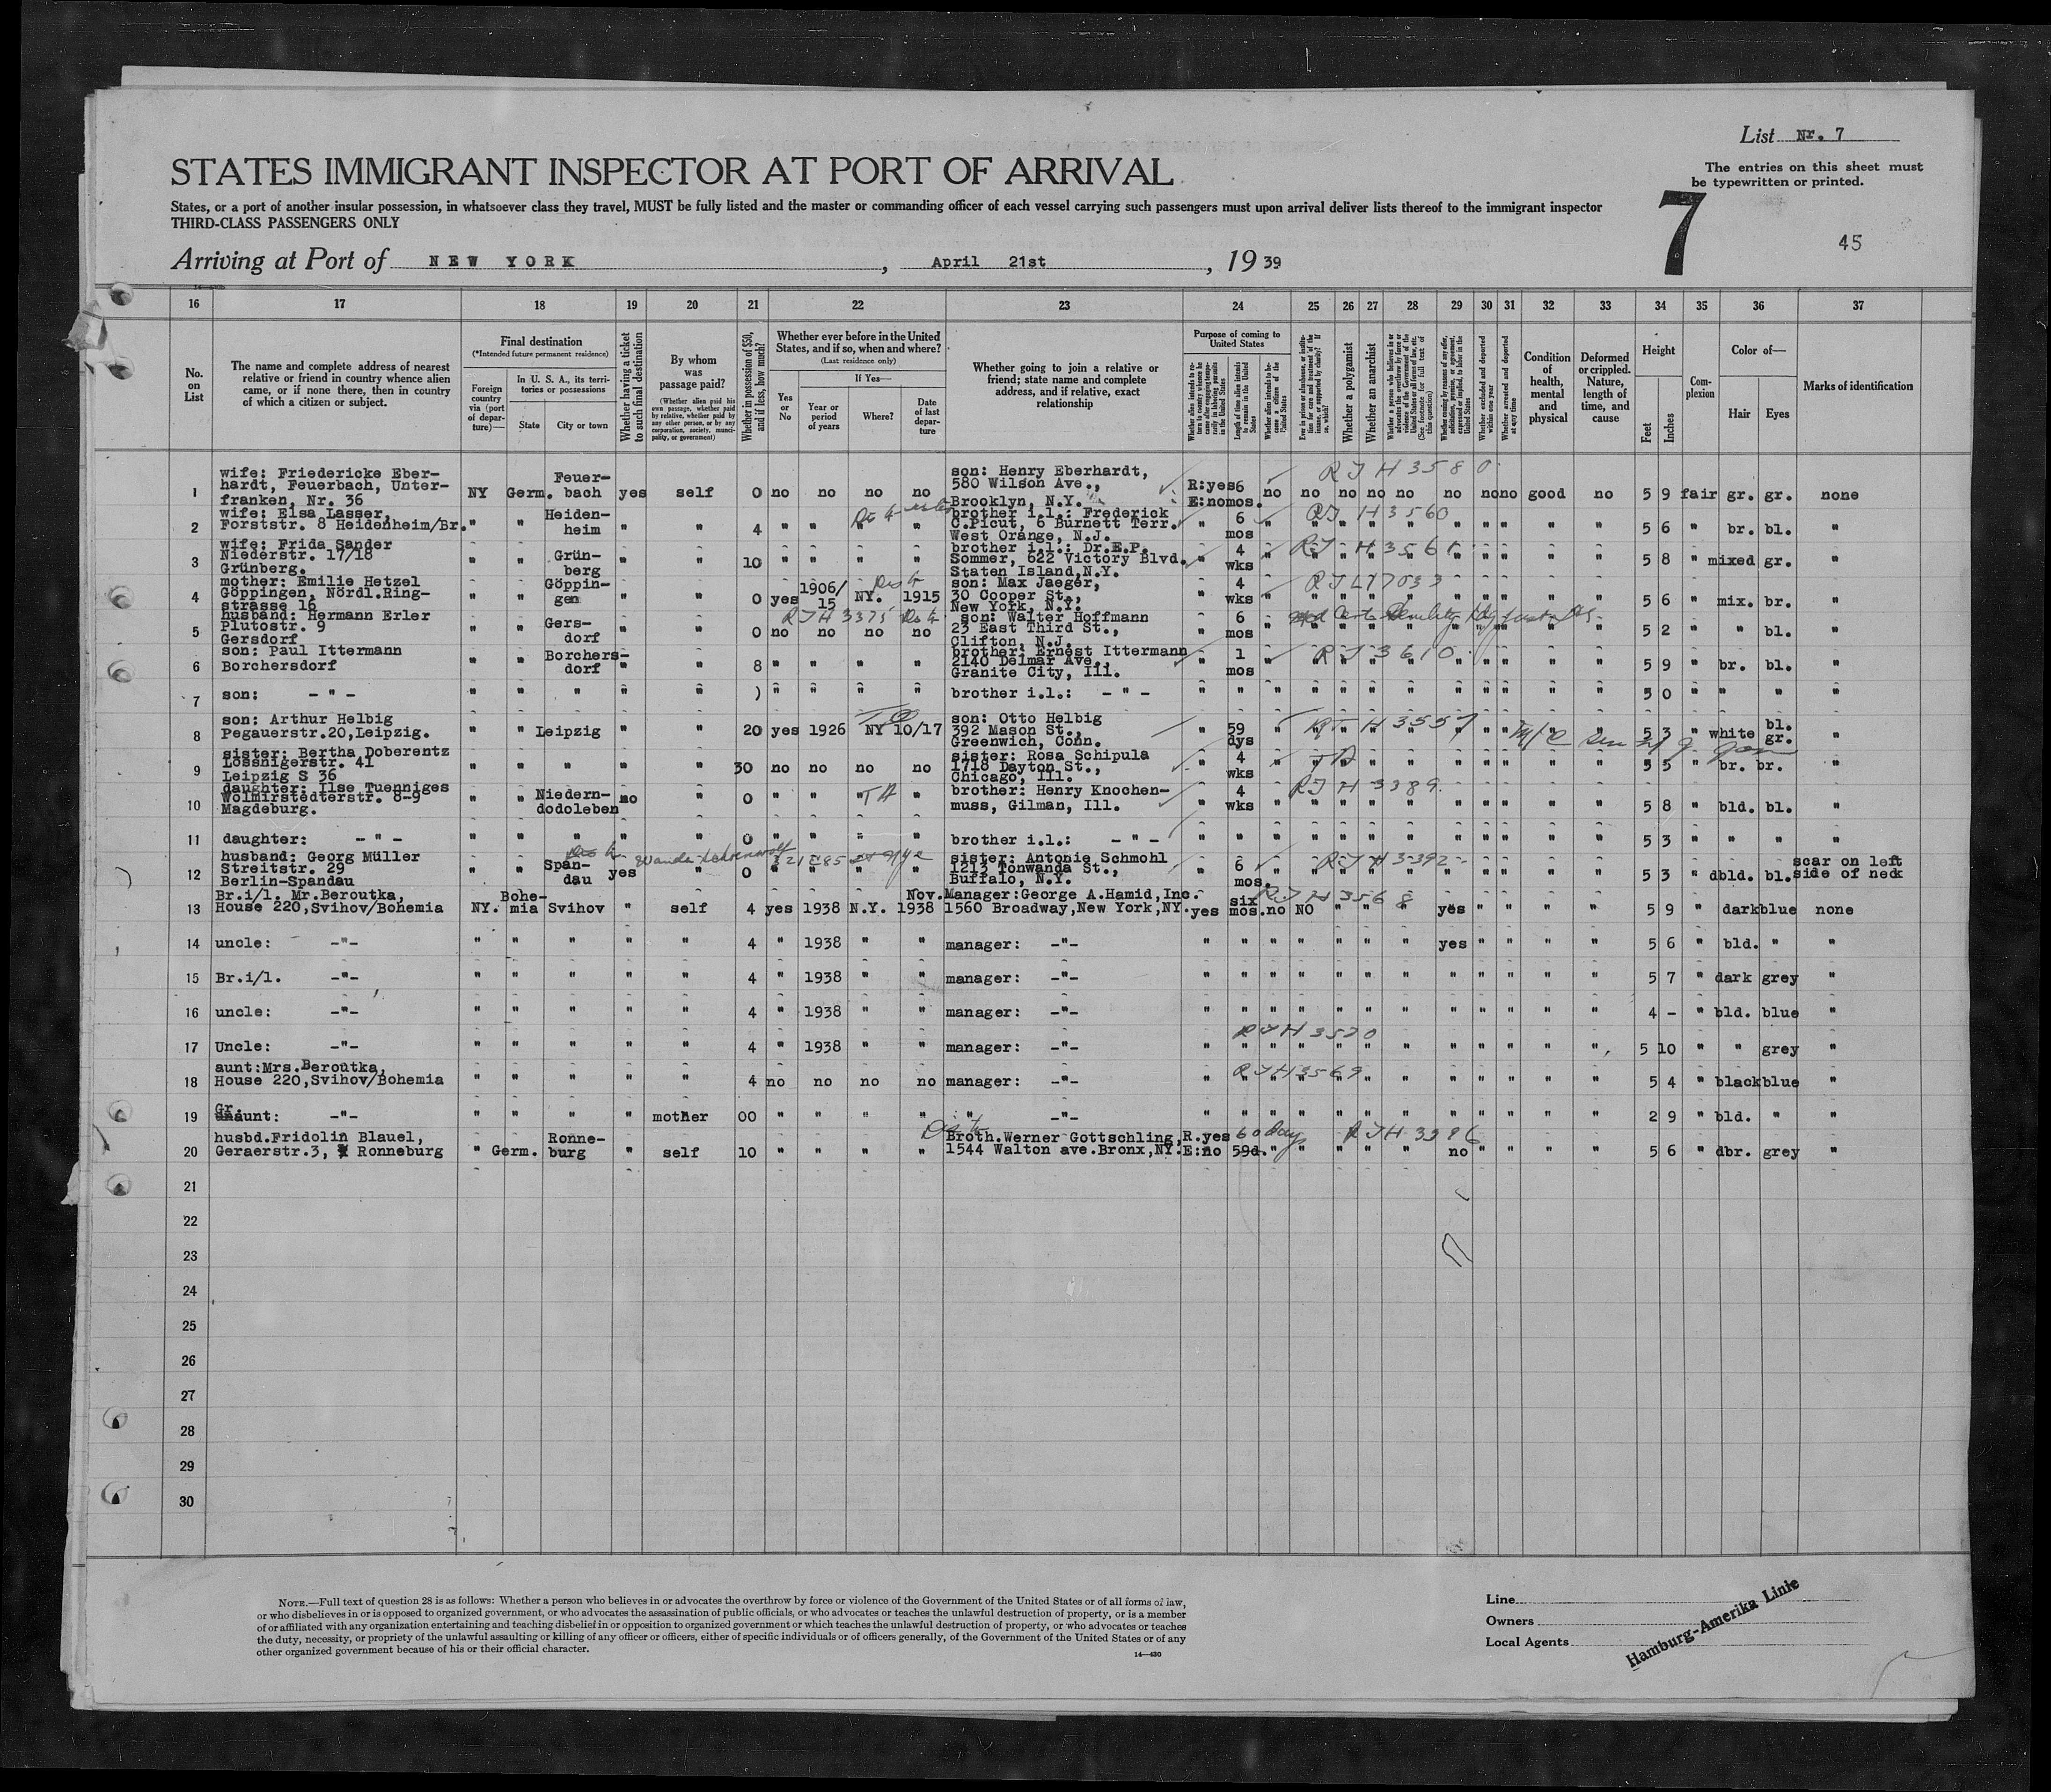 List Nr. 7
STATES IMMIGRANT INSPECTOR AT PORT OF ARRIVAL
The entries on this sheet must
be typewritten or printed.
States, or a port of another insular possession, in whatsoever class they travel, MUST be fully listed and the master or commanding officer of each vessel carrying such passengers must upon arrival deliver lists thereof to the immigrant inspector
THIRD-CLASS PASSENGERS ONLY
7
45
Arriving at Port of NEW YORK, April 21st, 19 39
16 17 18 19 20 21 22 23 24 25 26 27 28 29 30 31 32 33 34 35 36 37
No. on List
The name and complete address of nearest relative or friend in country whence alien came, or if none there, then in country of which a citizen or subject.
Final destination
(*Intended future permanent residence)
Foreign country via (port of departure)—
In U. S. A., its territories or possessions
State
City or town
Whether having a ticket to such final destination
By whom was passage paid?
(Whether alien paid his own passage, whether paid by relative, whether paid by any other person, or by any corporation, society, municipality, or government)
Whether in possession of $50, and if less, how much?
Whether ever before in the United States, and if so, when and where?
(Last residence only)
Yes or No
If Yes—
Year or period of years
Where?
Date of last departure
Whether going to join a relative or friend; state name and complete address, and if relative, exact relationship
Purpose of coming to United States
Whether a polygamist
Whether an anarchist
Condition of health, mental and physical
Deformed or crippled. Nature, length of time, and cause
Height
Feet
Inches
Complexion
Color of—
Hair
Eyes
Marks of identification
1 wife: Friedericke Eberhardt, Feuerbach, Unterfranken, Nr. 36 NY Germ. Feuerbach yes self 0 no no no no son: Henry Eberhardt, 580 Wilson Ave., Brooklyn, N.Y. R:yes E:no 6 mos. no no no no no no no no good no 5 9 fair gr. gr. none
RJH 3580
2 wife: Elsa Lasser, Forststr. 8 Heidenheim/Br. " " Heidenheim " " 4 " " " " brother i.l.: Frederick C.Picut, 6 Burnett Terr. West Orange, N.J. " 6 mos " " " " " " " " " " 5 6 " br. bl. "
RJH 3560
3 wife: Frida Sander Niederstr. 17/18 Grünberg. " " Grünberg " " 10 " " " " brother i.l.: Dr.E.P. Sommer, 622 Victory Blvd. Staten Island,N.Y. " 4 wks " " " " " " " " " " 5 8 " mixed gr. "
RJH 3561
4 mother: Emilie Hetzel Göppingen, Nördl.Ringstrasse 16 " " Göppingen " " 0 yes 1906/15 NY. 1915 son: Max Jaeger, 30 Cooper St., New York, N.Y. " 4 wks " " " " " " " " " " 5 6 " mix. br. "
5 husband: Hermann Erler Plutostr. 9 Gersdorf " " Gersdorf " " 0 no no no no son: Walter Hoffmann 23 East Third St., Clifton, N.J. " 6 mos " " " " " " " " " " 5 2 " " bl. "
RJH 3375
6 son: Paul Ittermann Borchersdorf " " Borchersdorf " " 8 " " " " brother: Ernest Ittermann 2140 Delmar Ave., Granite City, Ill. " 1 mos " " " " " " " " " " 5 9 " br. bl. "
RJ 3610
7 son: -"- " " " " " ) " " " " brother i.l.: -"- " " " " " " " " " " " " " 5 0 " " " "
8 son: Arthur Helbig Pegauerstr.20,Leipzig. " " Leipzig " " 20 yes 1926 NY 10/17 son: Otto Helbig 392 Mason St., Greenwich, Conn. " 59 dys " " " " " " " " 5 3 " white bl. gr. "
RJH 3557
9 sister: Bertha Doberentz Lössnigerstr. 41 Leipzig S 36 " " " " " 30 no no no no sister: Rosa Schipula 1718 Dayton St., Chicago, Ill. " 4 wks " " " " " " " " " " 5 5 " br. br. "
10 daughter: Ilse Tuenniges Wolmirstedterstr. 8-9 Magdeburg. " " Niederndodoleben no " 0 " " " " brother: Henry Knochenmuss, Gilman, Ill. " 4 wks " " " " " " " " " " 5 8 " bld. bl. "
RJH 3389
11 daughter: -"- " " " " " 0 " " " " brother i.l.: -"- " " " " " " " " " " " " " 5 3 " " " "
12 husband: Georg Müller Streitstr. 29 Berlin-Spandau " " Spandau yes " 0 " " " " sister: Antonie Schmohl 1213 Tonwanda St., Buffalo, N.Y. " 6 mos. " " " " " " " " " " 5 3 " dbld. bl. scar on left side of neck
RJH 3392
13 Br.i/l. Mr.Beroutka, House 220,Svihov/Bohemia NY. Bohemia Svihov " self 4 yes 1938 N.Y. Nov. 1938 Manager:George A.Hamid,Inc. 1560 Broadway,New York,NY. yes six mos. no NO " " " yes " " " " 5 9 " dark blue none
RJH 3568
14 uncle: -"- " " " " " 4 " 1938 " " manager: -"- " " " " " " " yes " " " " 5 6 " bld. " "
15 Br.i/l. -"- " " " " " 4 " 1938 " " manager: -"- " " " " " " " " " " " " 5 7 " dark grey "
16 uncle: -"- " " " " " 4 " 1938 " " manager: -"- " " " " " " " " " " " " 4 - " bld. blue "
17 Uncle: -"- " " " " " 4 " 1938 " " manager: -"- " " " " " " " " " " " " 5 10 " " grey "
RJH 3570
18 aunt:Mrs.Beroutka, House 220,Svihov/Bohemia " " " " " 4 no no no no manager: -"- " " " " " " " " " " " " 5 4 " black blue "
RJH 3569
19 Gr. aunt: -"- " " " " mother 00 " " " " " -"- " " " " " " " " " " " " 2 9 " bld. " "
20 husbd.Fridolin Blauel, Geraerstr.3, Ronneburg " Germ. Ronneburg " self 10 " " " " Broth.Werner Gottschling, 1544 Walton ave.Bronx,NY. R.yes E:no 59d. " " " " " no " " " " 5 6 " dbr. grey "
60 days RJH 3396
21
22
23
24
25
26
27
28
29
30
NOTE.—Full text of question 28 is as follows: Whether a person who believes in or advocates the overthrow by force or violence of the Government of the United States or of all forms of law,
or who disbelieves in or is opposed to organized government, or who advocates the assassination of public officials, or who advocates or teaches the unlawful destruction of property, or is a member
of or affiliated with any organization entertaining and teaching disbelief in or opposition to organized government or which teaches the unlawful destruction of property, or who advocates or teaches
the duty, necessity, or propriety of the unlawful assaulting or killing of any officer or officers, either of specific individuals or of officers generally, of the Government of the United States or of any
other organized government because of his or their official character.
14—430
Line
Owners
Local Agents
Hamburg-Amerika Linie